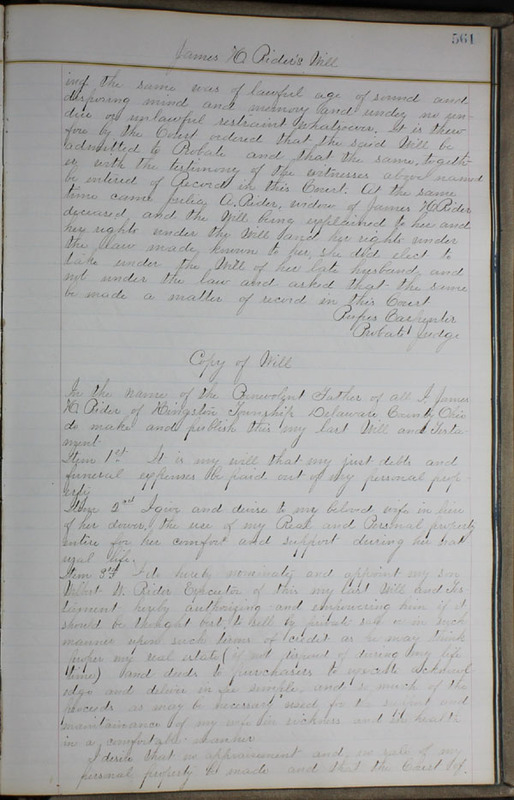 561
James H. Rider's Will
ing the same was of lawful age of sound and
disposing mind and memory and under no un-
due or unlawful restraint whatsoever. It is there
fore by the Court ordered that the said Will be
admitted to Probate and that the same, togeth-
er with the testimony of the witnesses above named
be entered of Record in this Court. At the same
time came Julia A. Rider, widow of James H Rider
deceased, and the Will being explained to her and
her rights under the Will and her rights under
the law made known to her, she did elect to
take under the Will of her late husband, and
not under the law and asked that the same
be made a matter of record in this Court
Rufus Carpenter
Probate Judge
Copy of Will
In the name of the Benevolent Father of all I James
H. Rider of Kingston Township Delaware County, Ohio
do make and publish this my last Will and Testa-
ment.
Item 1st It is my will that my just debts and
funeral expenses be paid out of my personal prop
erty
Item 2nd I give and devise to my beloved wife in lieu
of her dower, the use of my Real and Personal property
entire for her comfort and support during her nat
ural life.
Item 3rd I do hereby nominate and appoint my son
Wilbert W. Rider Executor of this my last Will and Tes
tament hereby authorizing and empowering him if it
should be thought best to sell by private sale or in such
manner upon such terms of credit as he may think
proper my real estate (if not disposed of during my life
time) and deeds to purchasers to execute acknowl
edge and deliver in fee simple, and so much of the
proceeds as may be necessary used for the support and
maintainance of my wife in sickness and in health
in a comfortable manner
I desire that no appraisement and no sale of my
personal property be made and that the Court of